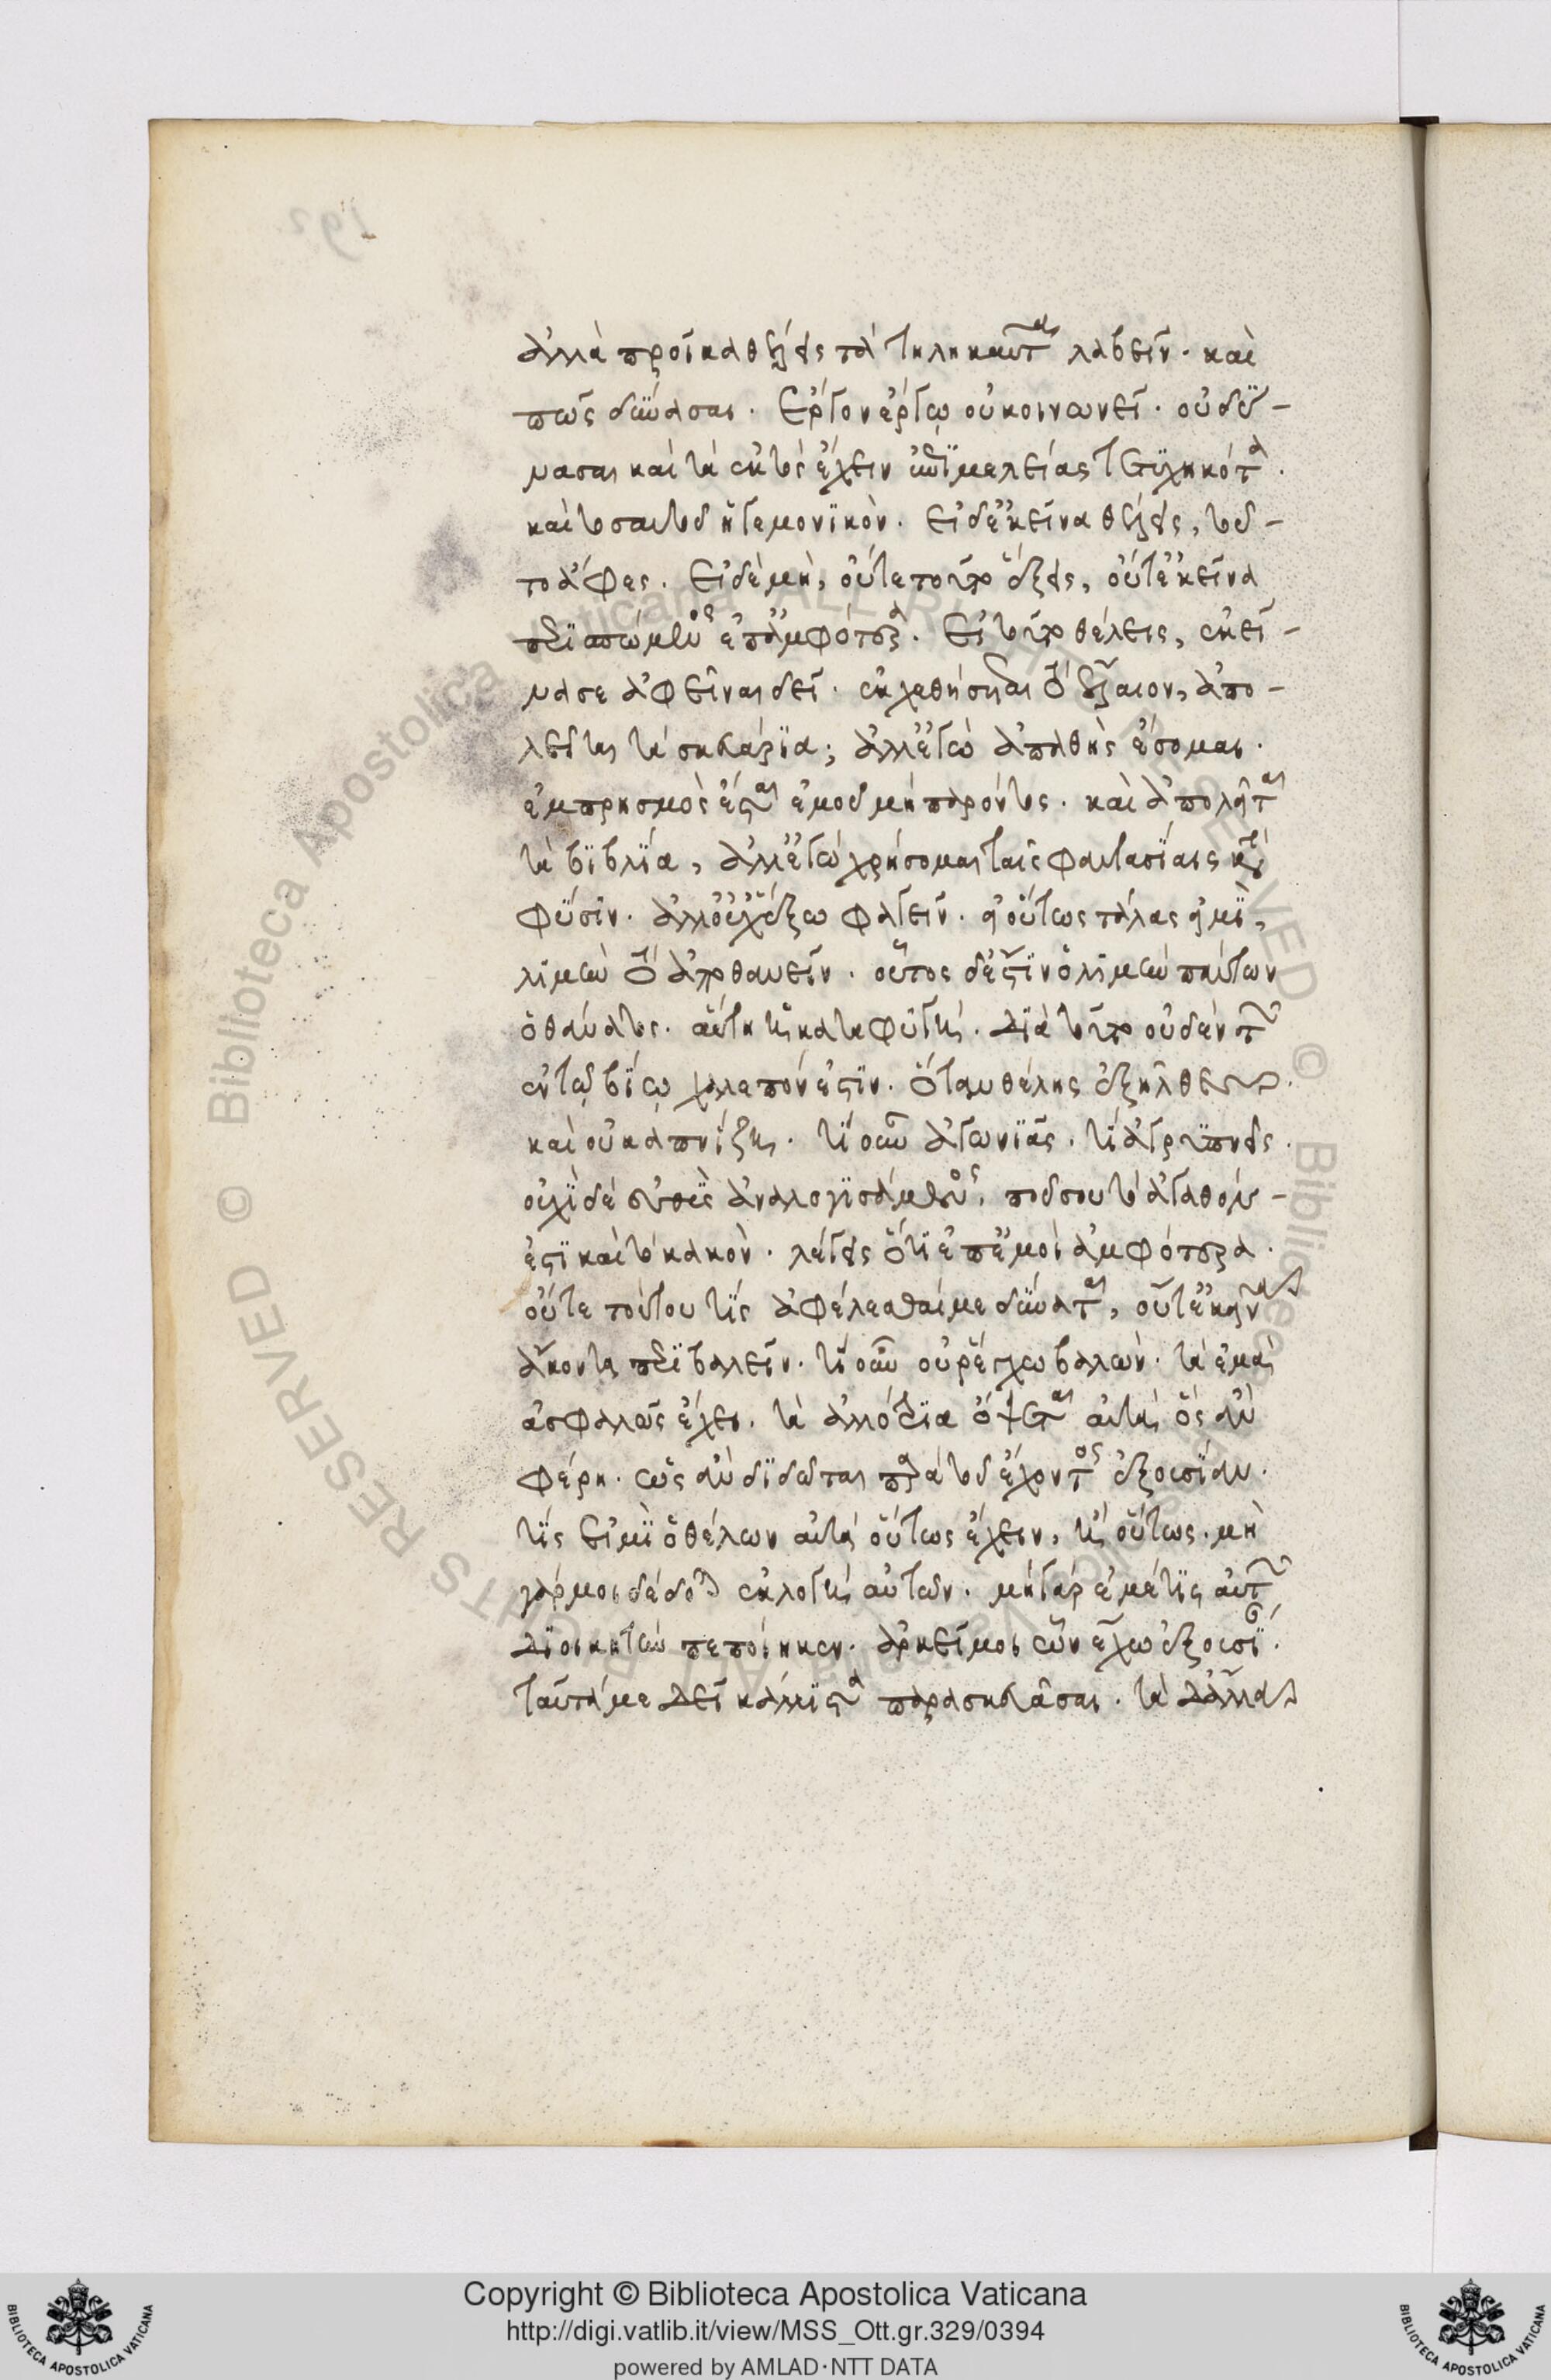 ἀλλὰ προῖκα θέλεις τὰ τηλικαῦτα λαβεῖν. καὶ
πῶς δύνασαι. ἔργον ἔργῳ οὐ κοινωνεῖ. οὐ δύ-
νασαι καὶ τὰ ἐκτὸς ἔχειν ἐπιμελείας τετυχηκότα.
καὶ τὸ σαυτοῦ ἡγεμονικόν. εἰ δ' ἐκεῖνα θέλεις, τοῦ-
το ἄφες. εἰ δὲ μὴ, οὔτε τοῦτο ἕξεις, οὔτ' ἐκεῖνα
περισπώμενος ἐπ' ἀμφότερα. εἰ τοῦτο θέλεις, ἐκεῖ-
νά σε ἀφεῖναι δεῖ. ἐκχεθήσεται τὸ ἔλαιον, ἀπο-
λεῖται τὰ σκευάρια; ἀλλ' ἐγὼ ἀπαθὴς ἔσομαι.
ἐμπρησμὸς ἔσται ἐμοῦ μὴ παρόντος. καὶ ἀπολεῖται
τὰ βιβλία, ἀλλ' ἐγὼ χρήσομαι ταῖς φαντασίαις κατὰ
φύσιν. ἀλλ' οὐχ ἕξω φαγεῖν. εἰ οὕτως τάλας εἰμὶ,
λιμὴν τὸ ἀποθανεῖν. οὗτος δ' ἐστὶν ὁ λιμὴν πάντων
ὁ θάνατος. αὕτη ἡ καταφυγή. διὰ τοῦτο οὐδὲν τῶν
ἐν τῷ βίῳ χαλεπόν ἐστιν. ὅταν θέλῃς ἐξῆλθες
καὶ οὐ καπνίζῃ. τί οὖν ἀγωνιᾷς. τί ἀγρυπνεῖς.
οὐχὶ δὲ εὐθὺς ἀναλογισάμενος, ποῦ σου τὸ ἀγαθόν
ἐστι καὶ τὸ κακόν. λέγεις ὅτι ἐπ' ἐμοὶ ἀμφότερα.
οὔτε τούτου τίς ἀφελέσθαι με δύναται, οὔτ' ἐκείνοις
ἄκοντα περιβαλεῖν. τί οὖν οὐ ῥέγχω βαλών. τὰ ἐμὰ
ἀσφαλῶς ἔχει. τὰ ἀλλότρια ὄψεται αὐτὰ ὃς ἂν
φέρῃ. ὡς ἂν δίδωται παρὰ τοῦ ἔχοντος ἐξουσίαν.
τίς εἰμὶ ὁ θέλων αὐτὰ οὕτως ἔχειν, ἢ οὕτως. μὴ
γάρ μοι δέδοται ἐκλογὴ αὐτῶν. μὴ γὰρ ἐμέ τις αὐτῶν
διοικητὴν πεποίηκεν. ἀρκεῖ μοι ὧν ἔχω ἐξουσίαν.
ταῦτά με δεῖ κάλλιστα παρασκευάσαι. τὰ δ' ἄλλα